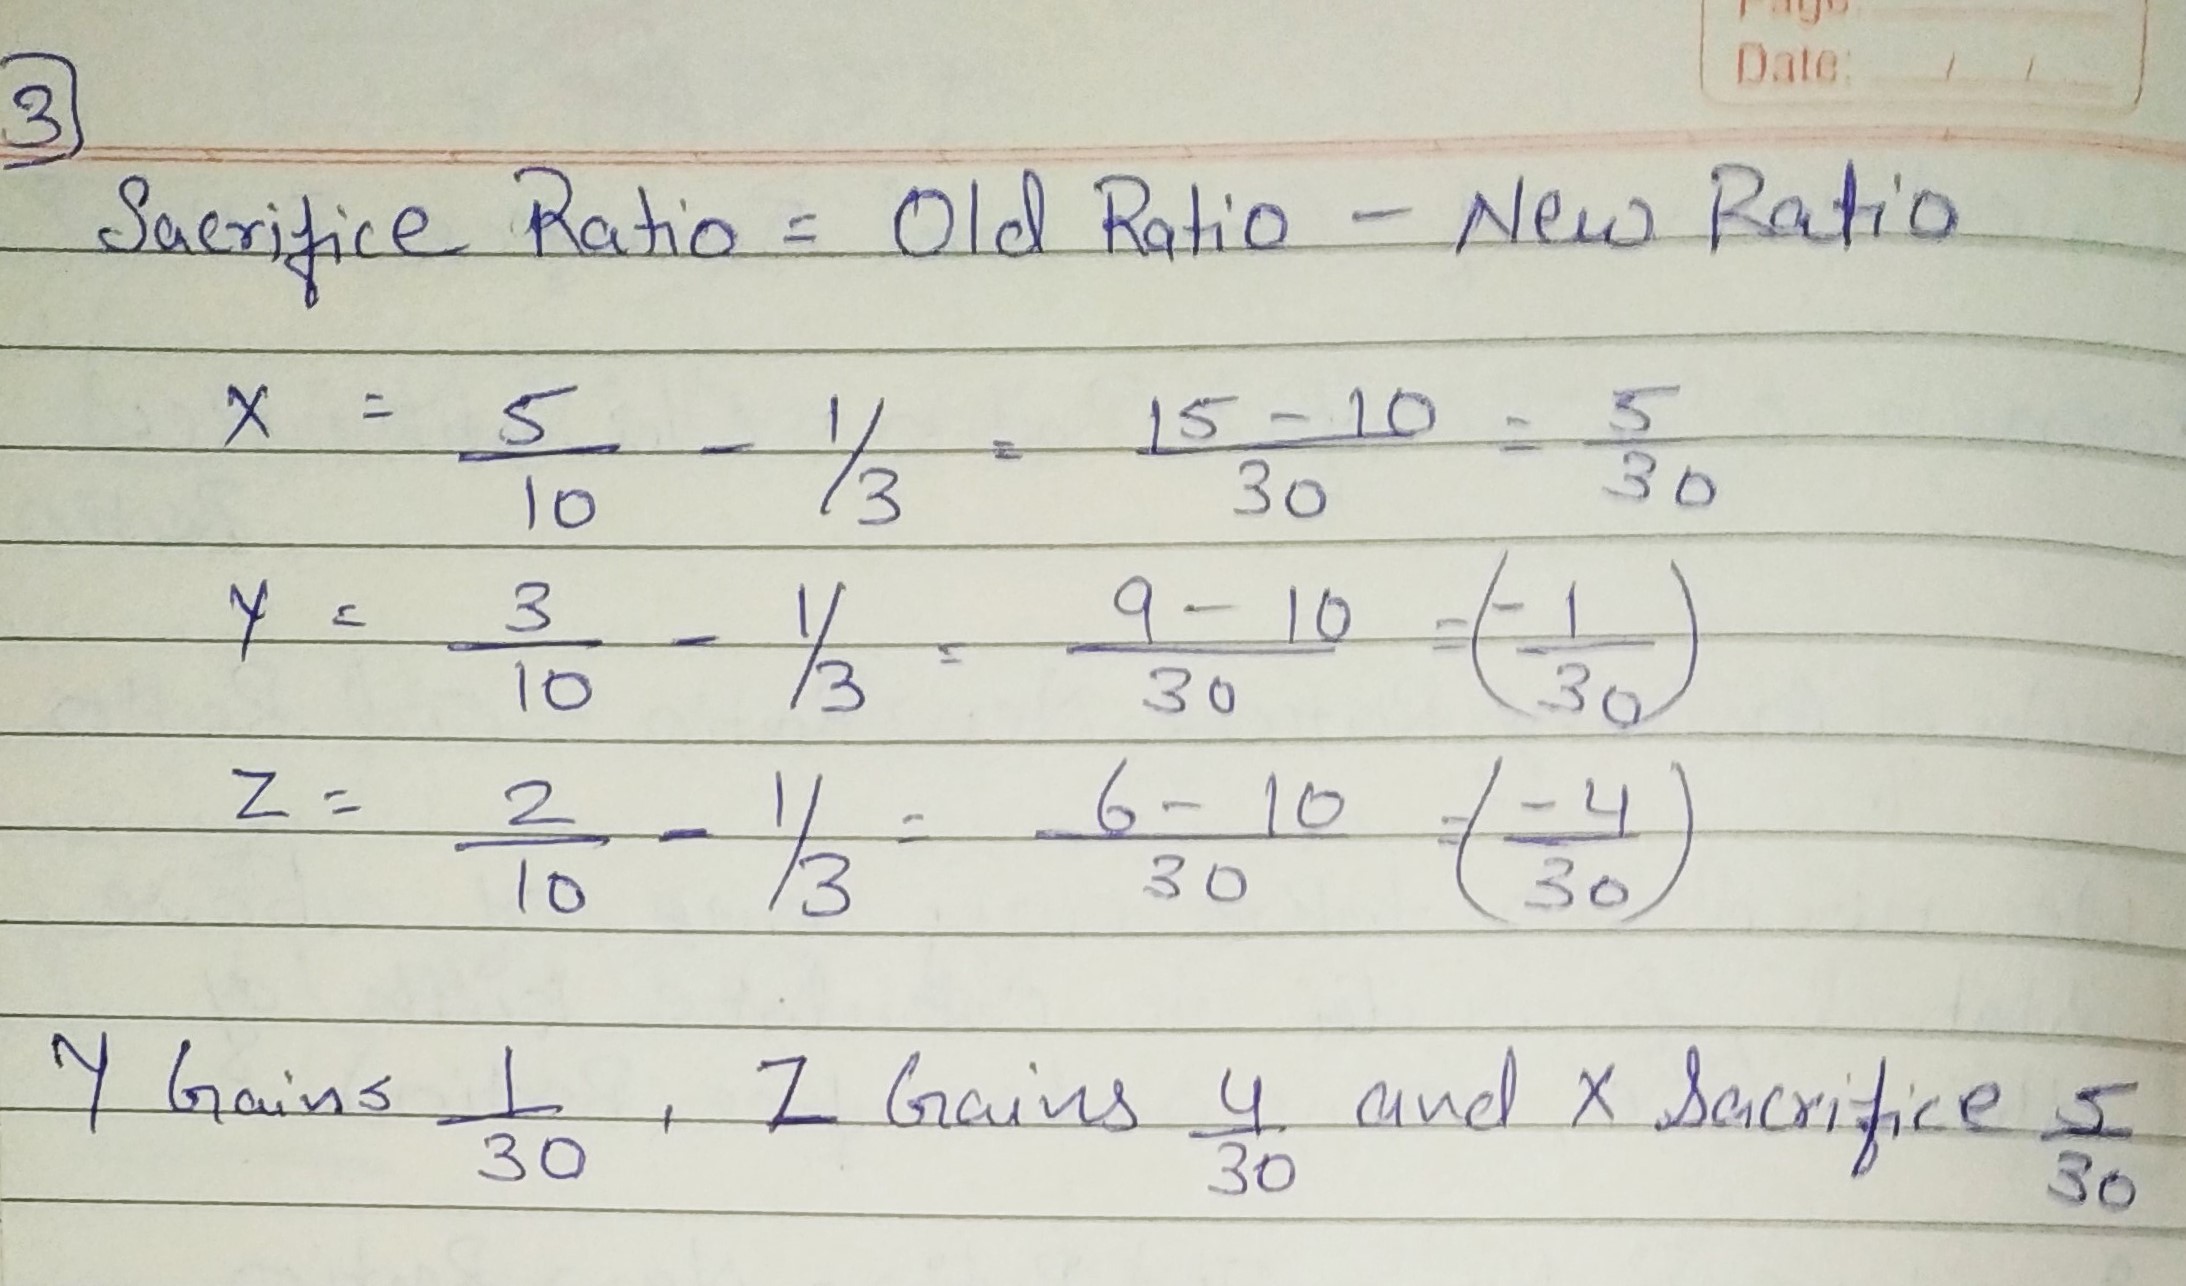 Page:
Date: / /
3
Sacrifice Ratio = Old Ratio - New Ratio
X = 5/10 - 1/3 = 15 - 10/30 = 5/30
Y = 3/10 - 1/3 = 9 - 10/30 = (-1/30)
Z = 2/10 - 1/3 = 6 - 10/30 = (-4/30)
Y Gains 1/30 , Z Gains 4/30 and X Sacrifice 5/30